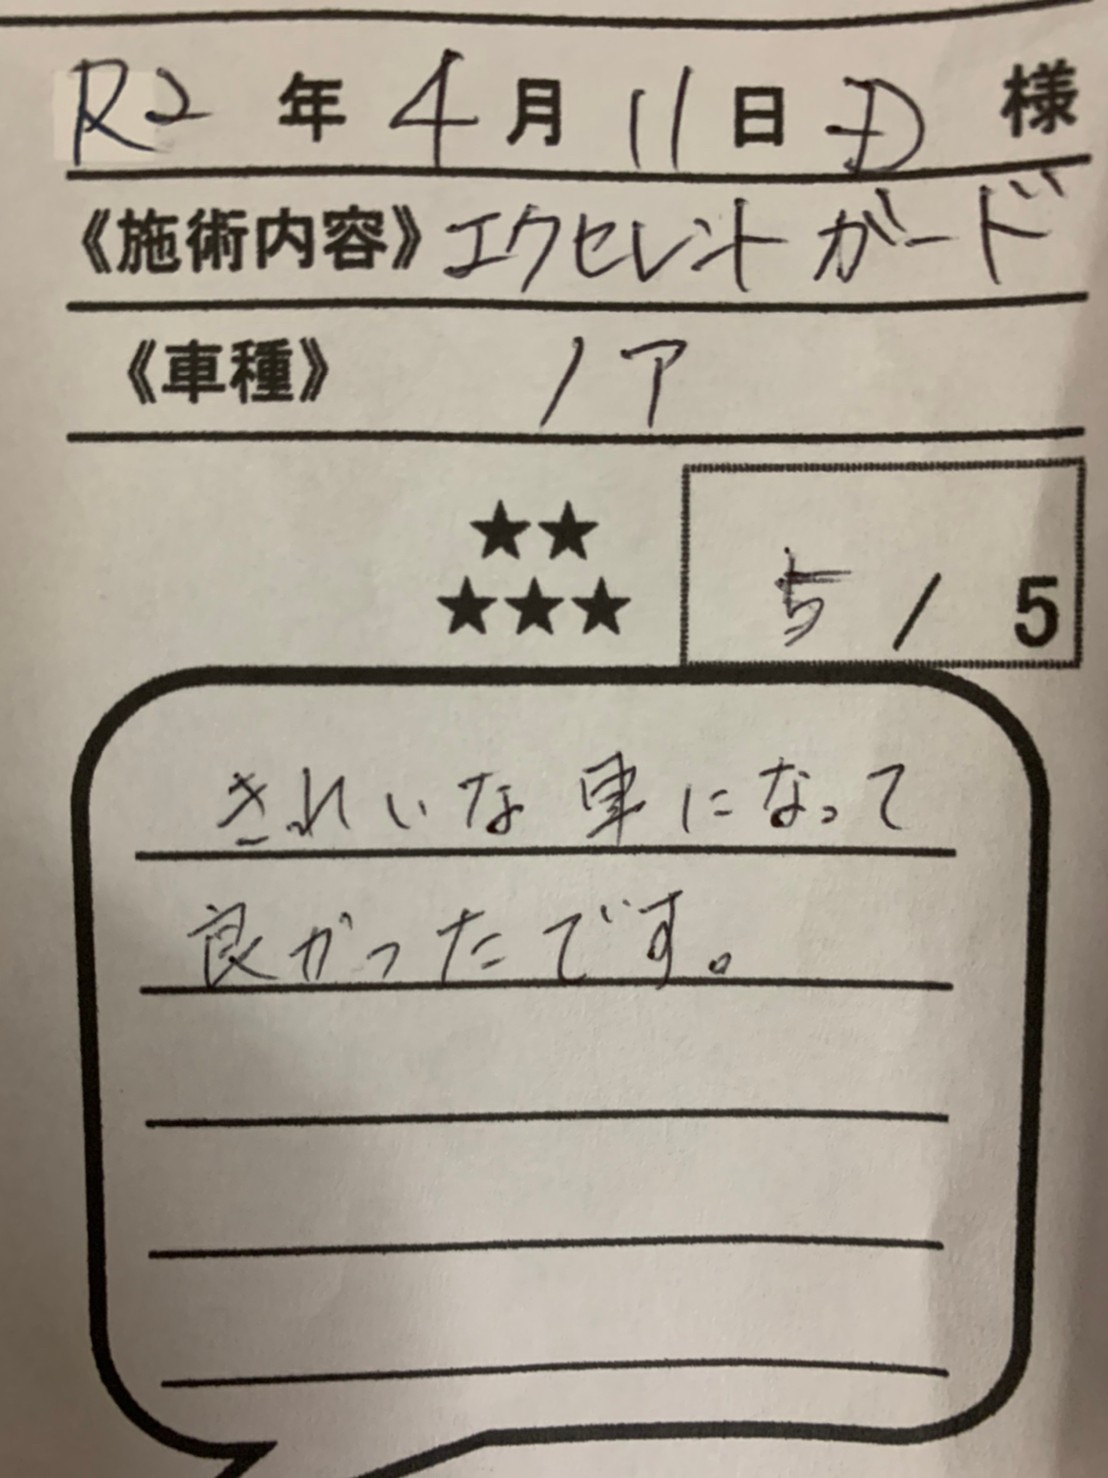 R2年4月11日 様
《施術内容》エクセレントガード
《車種》ノア
★★
★★★
5/5
きれいな車になって
良かったです。